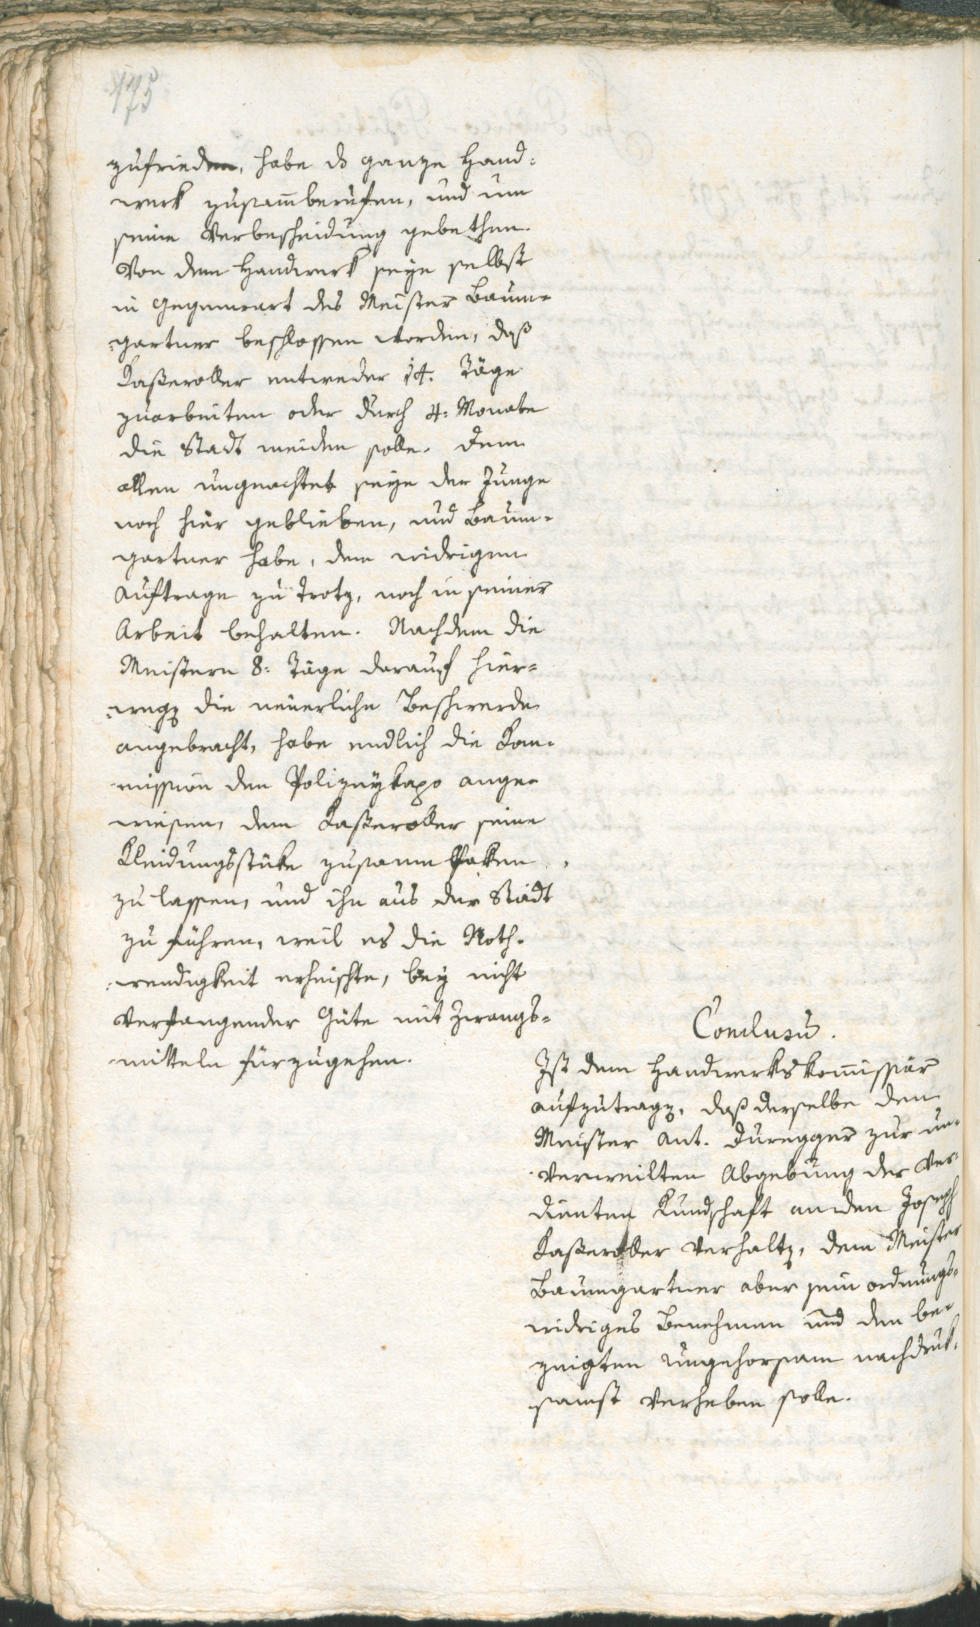 175
zufrieden, habe ds ganze Hand=
werk zusam̅berufen, und um
seine Verbescheidung gebethen.
Von dem Handwerk seye selbst
in Gegenwart des Meister Baum=
gartner beschlossen worden, daß
Kaßeroller entweder 14. Täge
zuarbeiten oder durch 4: Monate
die Stadt meiden solle. Dem
allen ungeachtet seye der Junge
noch hier geblieben, und Baum=
gartner habe, dem widrigen
Auftrage zu Trotz, noch in seiner
Arbeit behalten. Nachdem die
Meistern 8: Täge darauf hier=
wegen die neuerliche Beschwerde
angebracht, habe endlich die Kom=
mission den Polizeykapo ange=
wiesen, dem Kaßeroller seine
Kleidungsstüke zusamm Paken
zu lassen, und ihn aus der Stadt
zu führen, weil es die Noth=
wendigkeit erheischte, bey nicht
verfangender Güte mit Zwangs=
mitteln fürzugehen.
Conclusu̅.
Ist dem Handwerkskom̅issär
aufzutragen, daß derselbe den
Meister Ant. Duregger zur un=
verweilten Abgebung der ver=
dienten Kundschaft an den Joseph
Kaßeroller verhalten, dem Meister
Baumgartner aber sein ordnungs=
widriges Benehmen und den be=
zeigten Ungehorsam nachdruk=
samst verheben solle.